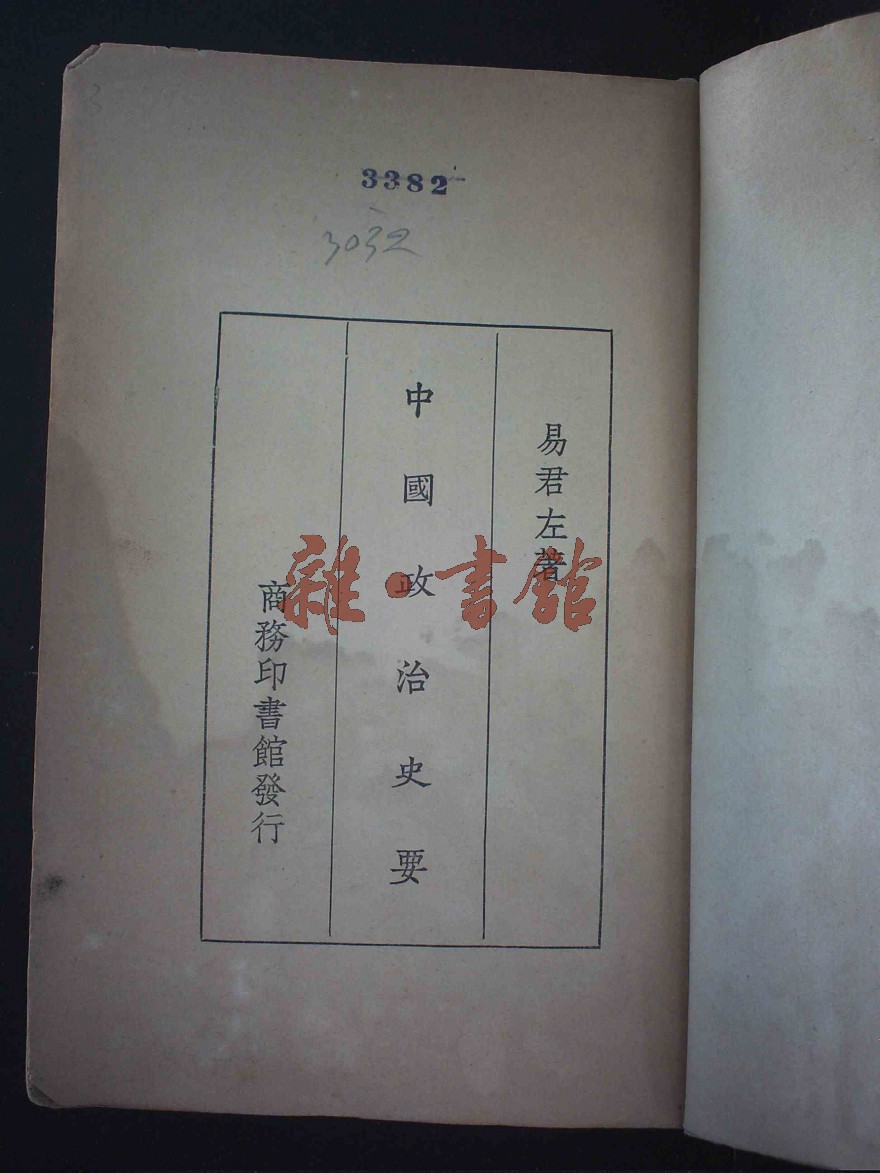 3382
3032
易君左著
中國政治史要
商務印書館發行
雜·書館